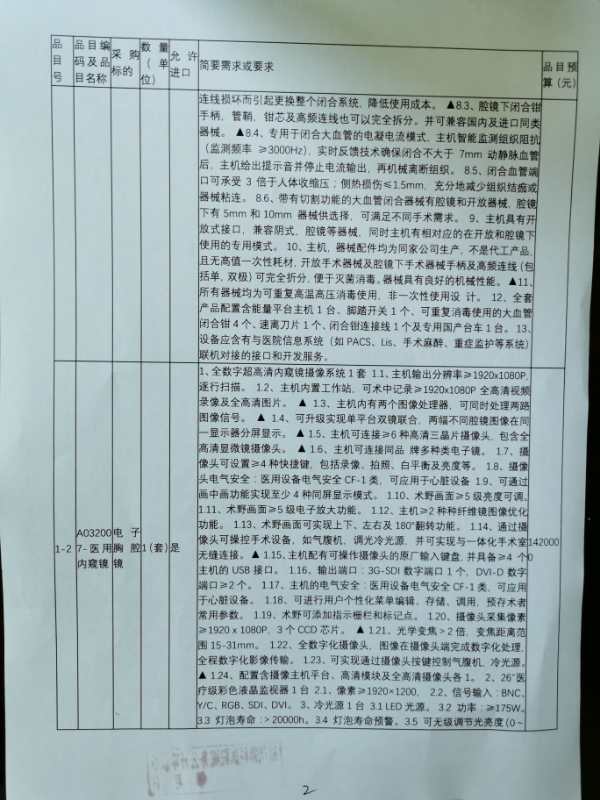 品目号
品目编码及品目名称
采购标的
数量（单位）
允许进口
简要需求或要求
品目预算（元）
连线损坏而引起更换整个闭合系统，降低使用成本。 ▲8.3、腔镜下闭合钳
手柄，管鞘，钳芯及高频连线也可以完全拆分。并可兼容国内及进口同类
器械。 ▲8.4、专用于闭合大血管的电凝电流模式，主机智能监测组织阻抗
（监测频率 ≥3000Hz），实时反馈技术确保闭合不大于 7mm 动静脉血管
后，主机给出提示音并停止电流输出，再机械离断组织。 8.5、闭合血管端
口可承受 3 倍于人体收缩压；侧热损伤≤1.5mm，充分地减少组织结痂或
器械粘连。 8.6、带有切割功能的大血管闭合器械有腔镜和开放器械，腔镜
下有 5mm 和 10mm 器械供选择，可满足不同手术需求。 9、主机具有开
放式接口，兼容阴式，腔镜等器械，同时主机有相对应的在开放和腔镜下
使用的专用模式。 10、主机，器械配件均为同家公司生产，不是代工产品，
且无高值一次性耗材，开放手术器械及腔镜下手术器械手柄及高频连线（包
括单，双极）可完全拆分，便于灭菌消毒。器械具有良好的机械性能。 ▲11、
所有器械均为可重复高温高压消毒使用，非一次性使用设 计。 12、全套
产品配置含能量平台主机 1 台、脚踏开关 1 个、可重复消毒使用的大血管
闭合钳 4 个、速离刀片 1 个、闭合钳连接线 1 个及专用国产台车 1 台。 13、
设备应含有与医院信息系统（如 PACS、Lis、手术麻醉、重症监护等系统）
联机对接的接口和开发服务。
1-2
A032007-医用内窥镜
电子胸腔镜
1（套）
是
1、全数字超高清内窥镜摄像系统 1 套 1.1、主机输出分辨率≥1920x1080P，
逐行扫描。 1.2、主机内置工作站，可术中记录≥1920x1080P 全高清视频
录像及全高清图片。 ▲ 1.3、主机内有两个图像处理器，可同时处理两路
图像信号。 ▲ 1.4、可升级实现单平台双镜联合，两幅不同腔镜图像在同
一显示器分屏显示。 ▲ 1.5、主机可连接≥6 种高清三晶片摄像头，包含全
高清显微镜摄像头。 ▲ 1.6、主机可连接同品 牌多种类电子镜。 1.7、摄
像头可设置≥4 种快捷键，包括录像、拍照、白平衡及亮度等。 1.8、摄像
头电气安全：医用设备电气安全 CF-1 类，可应用于心脏设备 1.9、可通过
画中画功能实现至少 4 种同屏显示模式。 1.10、术野画面≥5 级亮度可调。
1.11、术野画面≥5 级电子放大功能。 1.12、主机≥2 种种纤维镜图像优化
功能。 1.13、术野画面可实现上下、左右及 180°翻转功能。 1.14、通过摄
像头可操控手术设备，如气腹机，调光冷光源，并可实现与一体化手术室
无缝连接。 ▲ 1.15、主机配有可操作摄像头的原厂输入键盘，并具备≥4 个
主机的 USB 接口。 1.16、输出端口：3G-SDI 数字端口 1 个，DVI-D 数字
端口≥2 个。 1.17、主机的电气安全：医用设备电气安全 CF-1 类，可应用
于心脏设备。 1.18、可进行用户个性化菜单编辑、存储、调用，预存术者
常用参数。 1.19、术野可添加指示栅栏和标记点。 1.20、摄像头采集像素
≥1920 x 1080P，3 个 CCD 芯片。 ▲ 1.21、光学变焦＞2 倍，变焦距离范
围 15-31mm。 1.22、全数字化摄像头，图像在摄像头端完成数字化处理，
全程数字化影像传输。 1.23、可实现通过摄像头按键控制气腹机，冷光源。
▲ 1.24、配置含摄像主机平台、高清模块及全高清摄像头各 1。 2、26"医
疗级彩色液晶监视器 1 台 2.1、像素≥1920×1200， 2.2、信号输入：BNC、
Y/C、RGB、SDI、DVI。 3、冷光源 1 台 3.1 LED 光源。 3.2 功率：≥175W。
3.3 灯泡寿命：＞20000h。 3.4 灯泡寿命预警。 3.5 可无级调节光亮度（0～
1420000
2